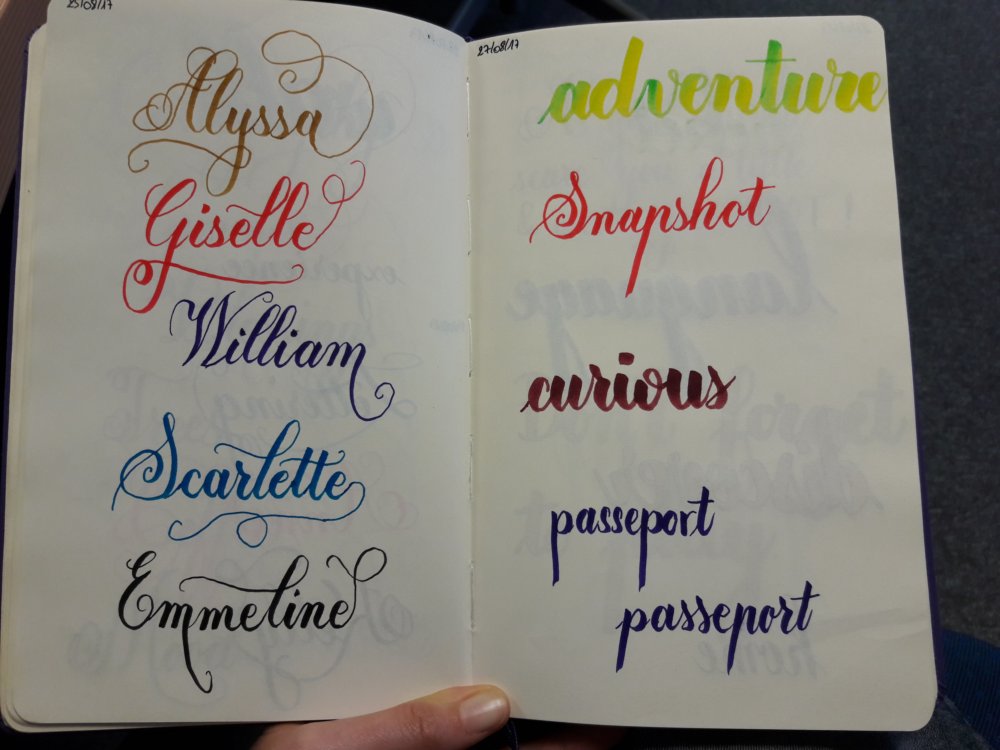 25/08/17
Alyssa
Giselle
William
Scarlette
Emmeline
27/08/17
adventure
Snapshot
curious
passeport
passeport